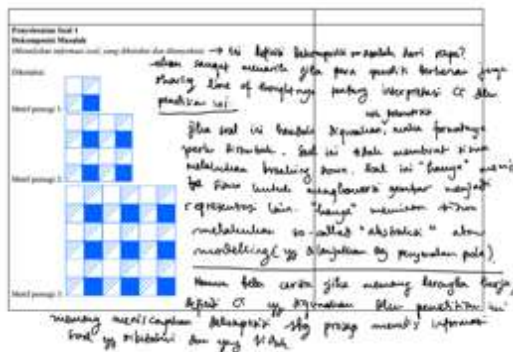 Penyelesaian Soal 1
Dekomposisi Masalah
(Menuliskan informasi soal, yang diketahui dan ditanyakan) → ini definisi dekomposisi masalah dari siapa?
Diketahui:
akan sangat menarik jika para peneliti berkenan juga
sharing line of thoughtnya tentang interpretasi CT dlm
penelitian ini.
Motif persegi 1:
jika soal ini hendak digunakan, maka formatnya
perlu dirombak. Soal ini tidak membuat siswa
melakukan breaking down. Soal ini "hanya"
siswa untuk mengkonversi gambar menjadi
Motif persegi 2:
representasi lain. "hanya" meminta siswa
melakukan so-called "abstraksi" atau
modelling (yg dilanjutkan dg pengenalan pola).
Namun beda cerita jika memang kerangka kerja
definisi CT yg digunakan dlm penelitian ini
Motif persegi 3:
memang mendefinisikan dekomposisi sbg proses informasi
soal yg diketahui dan yang tidak